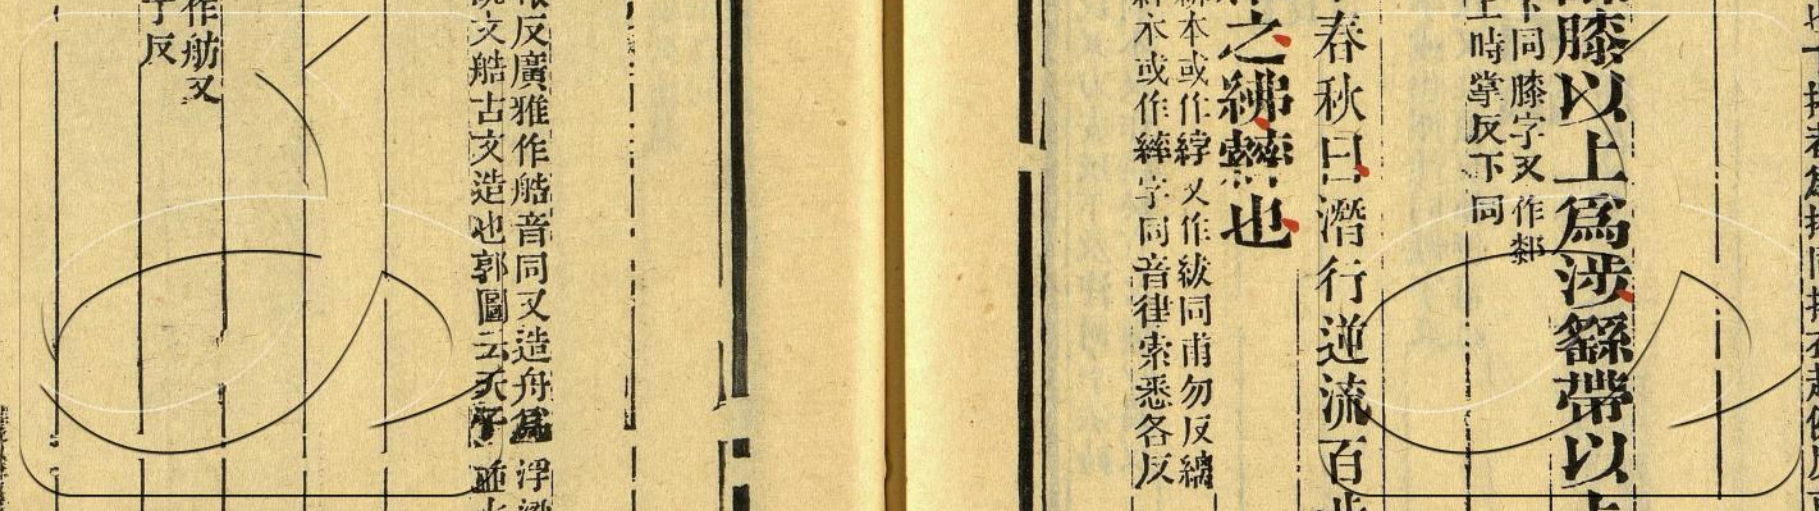 膝以上爲涉繇帶以
下同膝字又作𨞙
上時掌反下同
春秋曰潛行逆流百
之紼䋫也
本或作綍又作紱同甫勿反縭
本或作繂字同音律索悉各反
反廣雅作艁音同又造舟爲浮
說文艁古文造也郭圖云天子並
作舫又
字反